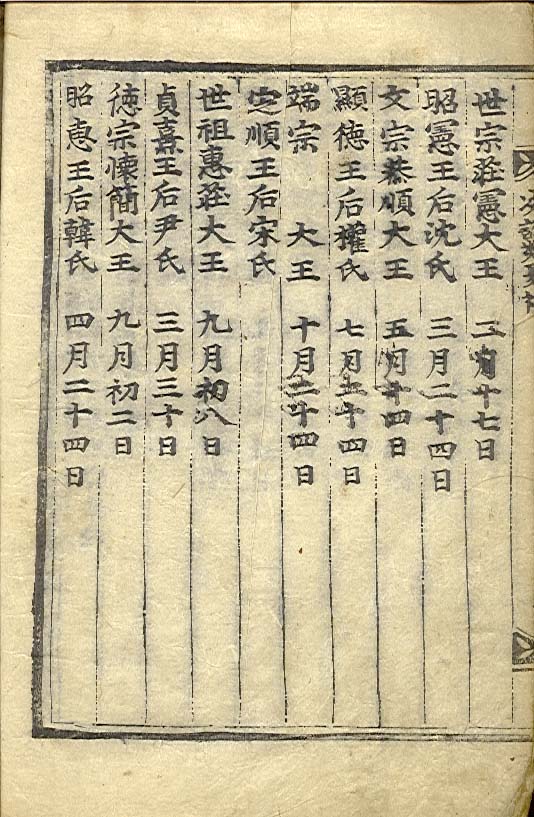 世宗莊憲大王 二月十七日
昭憲王后沈氏 三月二十四日
文宗恭順大王 五月十四日
顯德王后權氏 七月二十四日
端宗 大王 十月二十四日
定順王后宋氏
世祖惠莊大王 九月初八日
貞熹王后尹氏 三月三十日
德宗懷簡大王 九月初二日
昭惠王后韓氏 四月二十四日